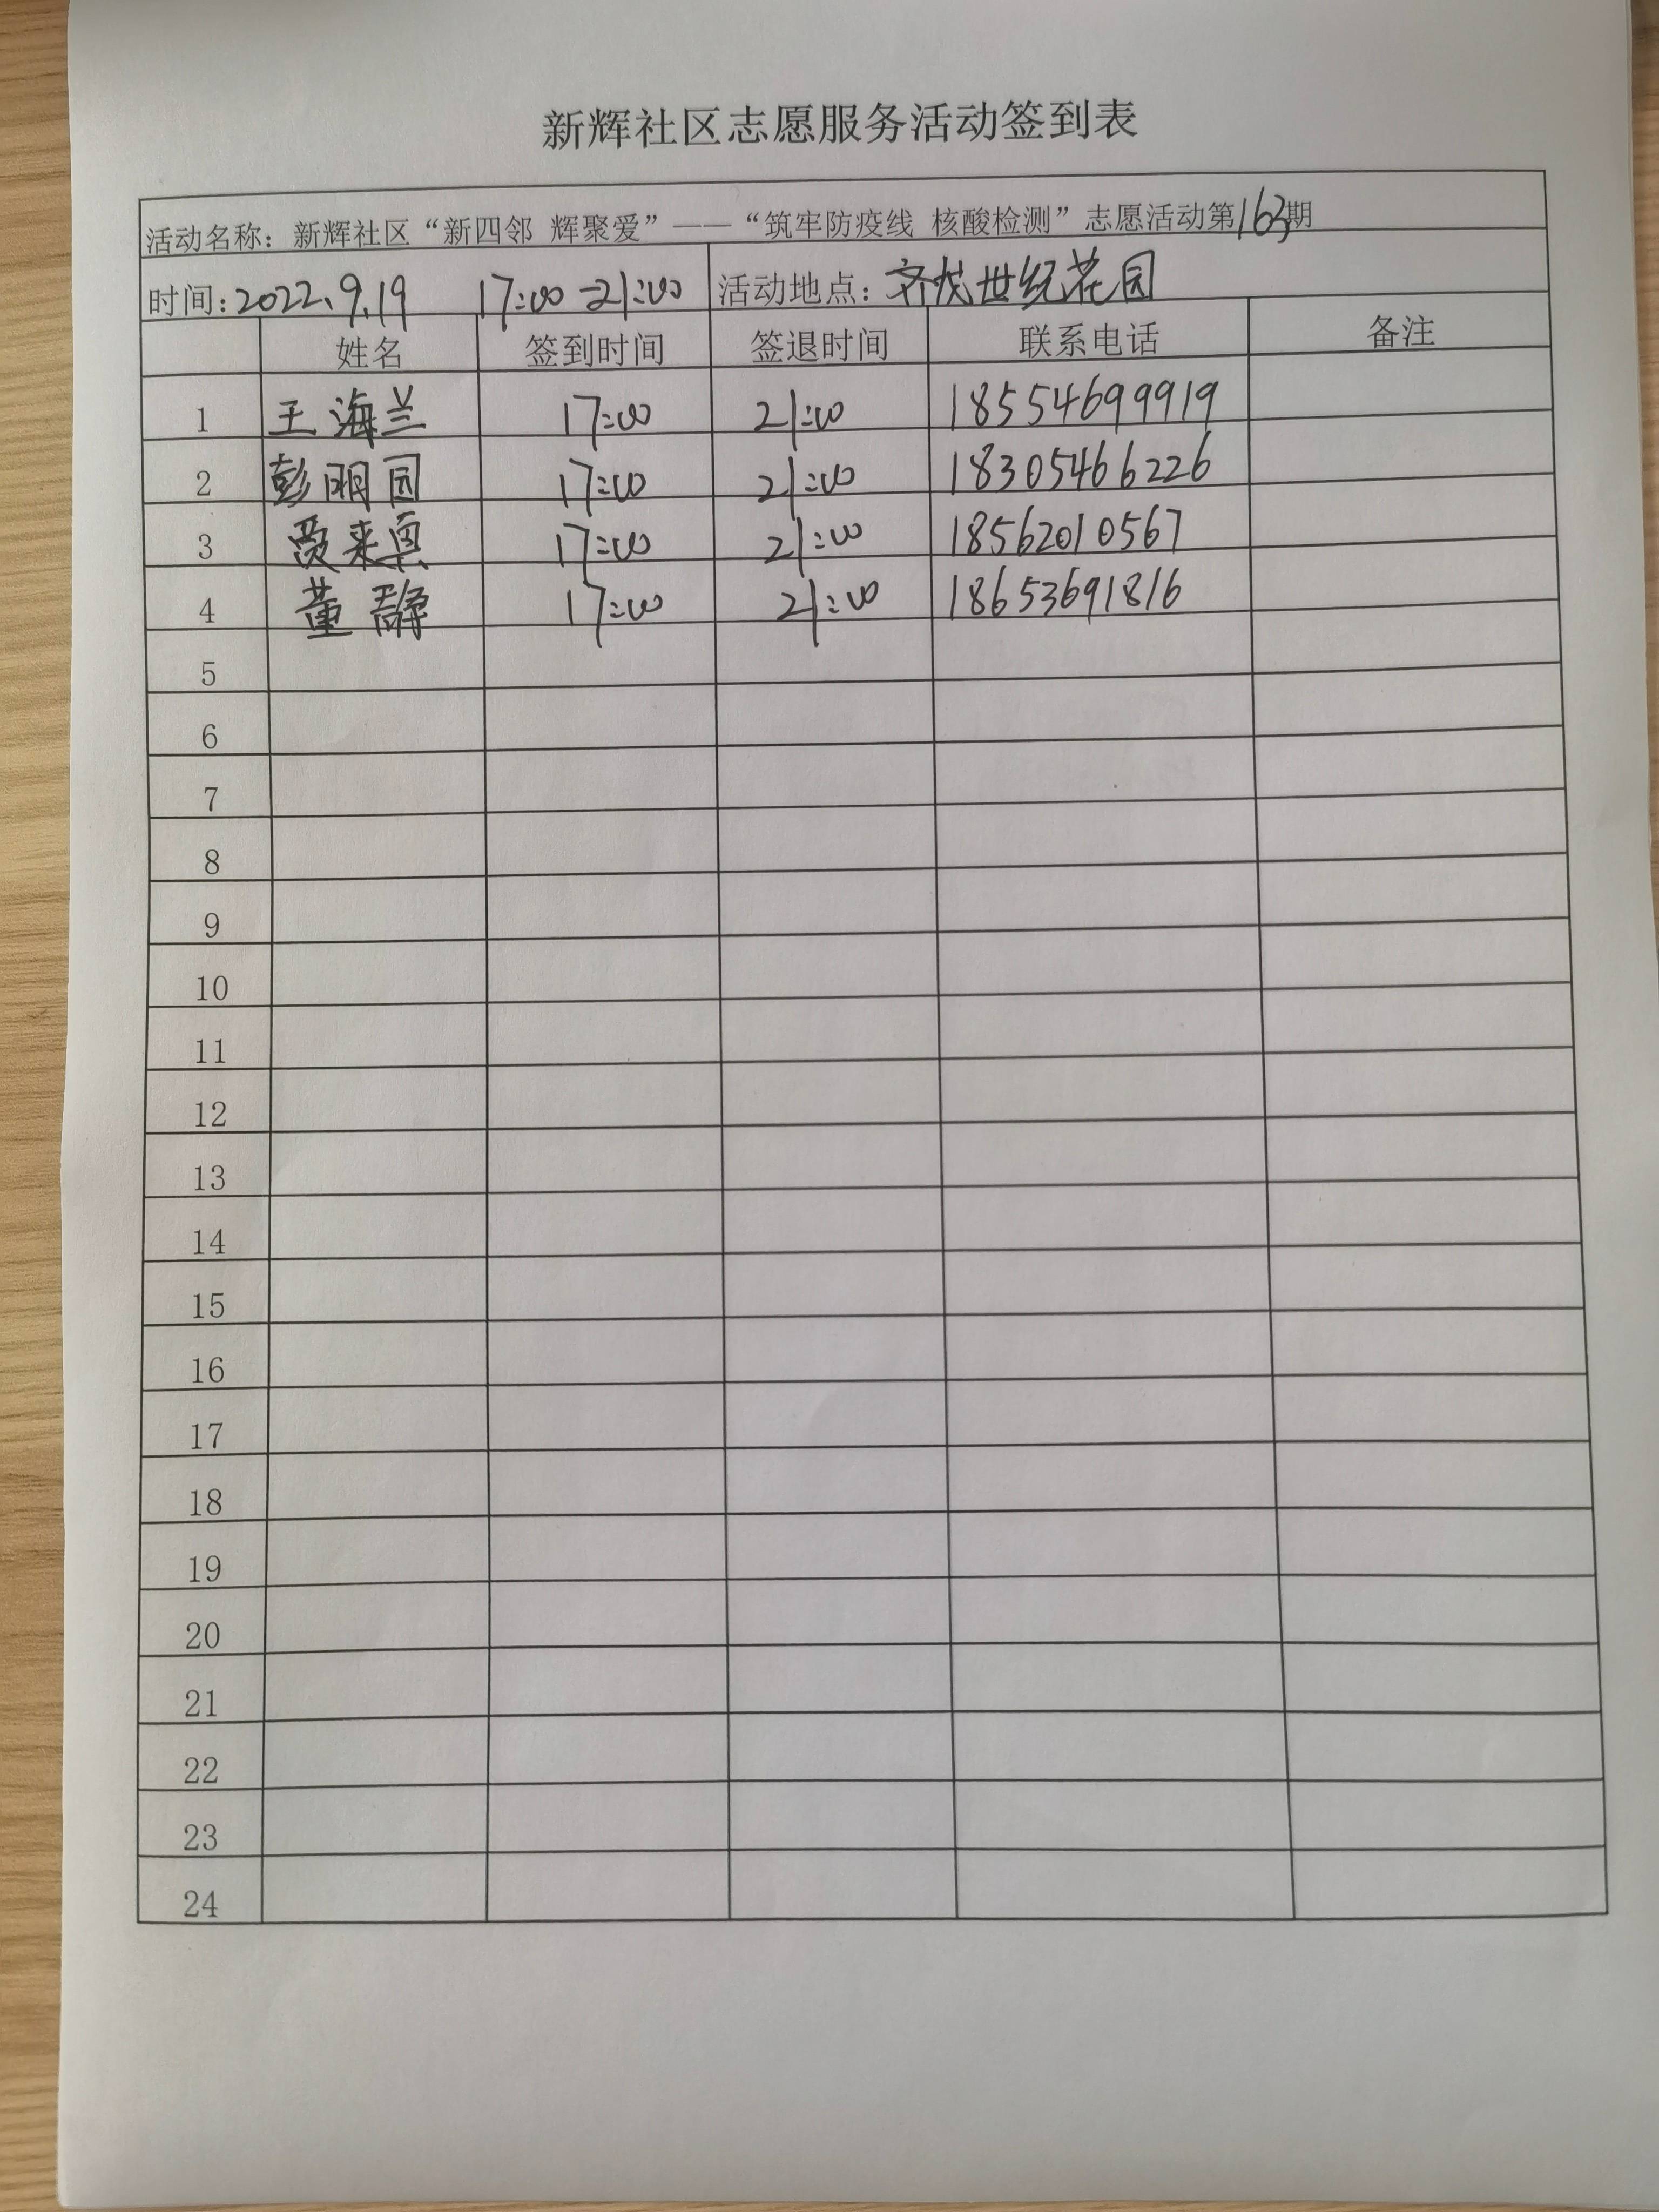 新辉社区志愿服务活动签到表
活动名称：新辉社区“新四邻 辉聚爱”——“筑牢防疫线 核酸检测”志愿活动第163期
时间：2022.9.19 17:00-21:00 活动地点：齐成世纪花园
姓名 签到时间 签退时间 联系电话 备注
1 王海兰 17:00 21:00 18554699919
2 彭明园 17:00 21:00 18305466226
3 17:00 21:00 18562010567
4 董静 17:00 21:00 18653691816
5
6
7
8
9
10
11
12
13
14
15
16
17
18
19
20
21
22
23
24